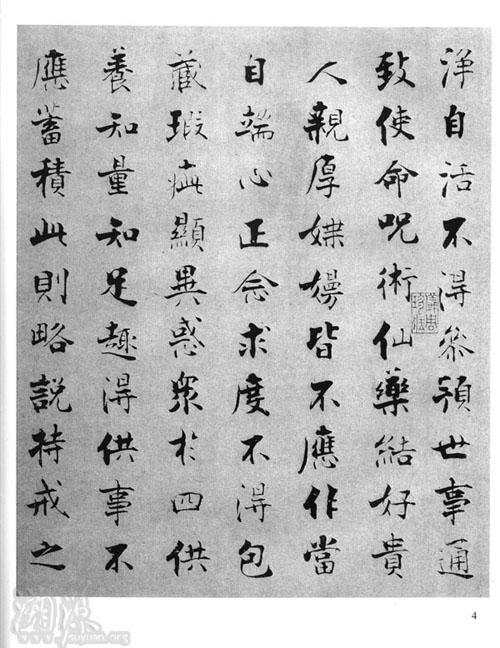 淨自活不得參預世事通
致使命呪術仙藥結好貴
人親厚媟嫚皆不應作當
自端心正念求度不得包
藏瑕疵顯異惑眾於四供
養知量知足趣得供事不
應蓄積此則略說持戒之
4
suyuan.org